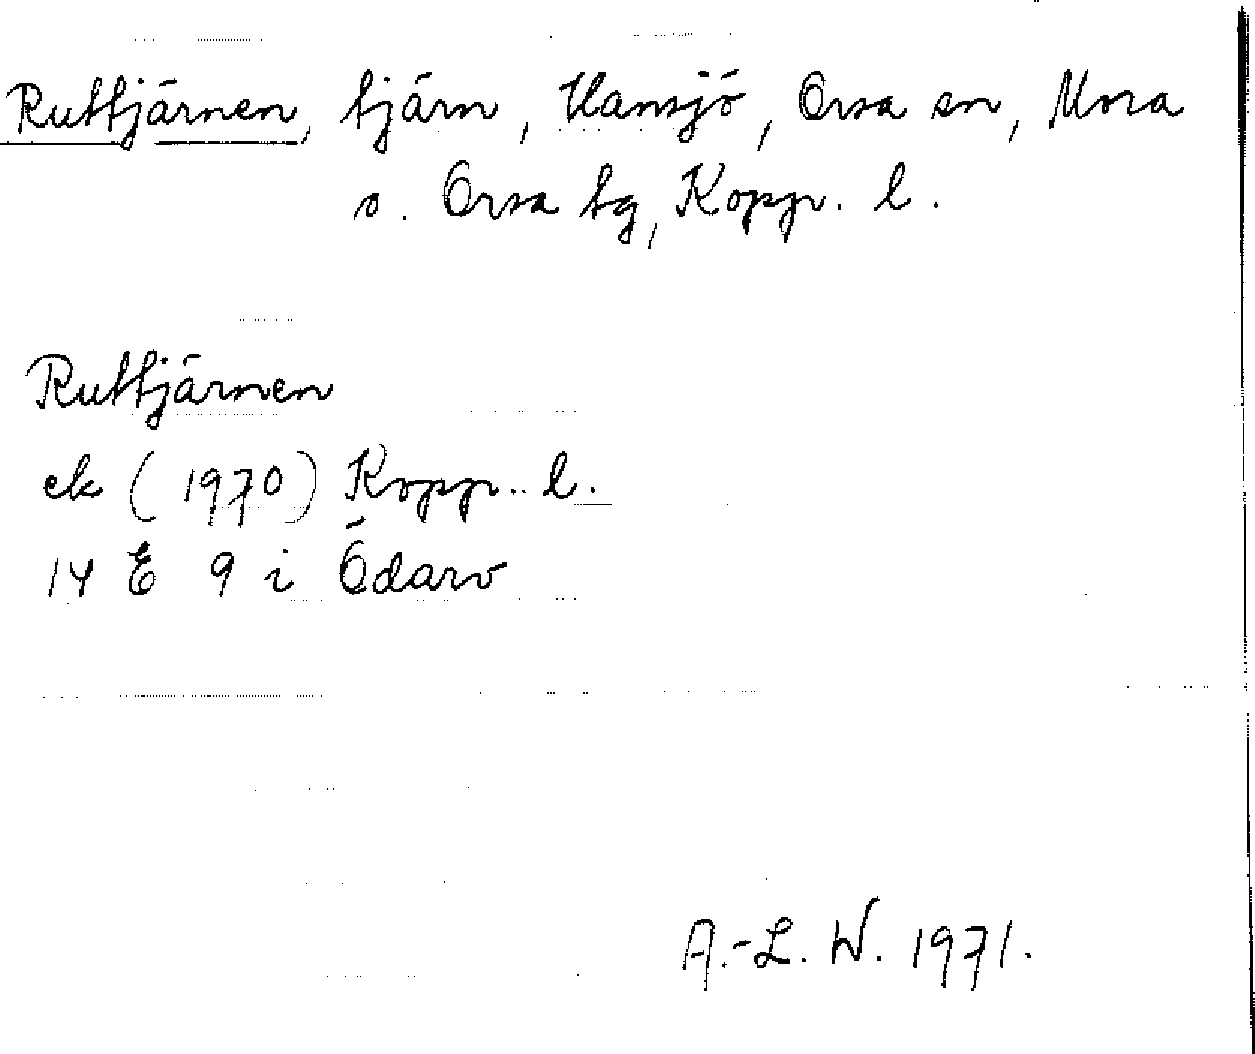 Ruttjärnen, tjärn, Hansjö, Orsa sn, Mora
o. Orsa tg, Kopp. l.
Ruttjärnen
ek (1970) Kopp. l.
14 E 9 i Ödarv
A.-L. W. 1971.